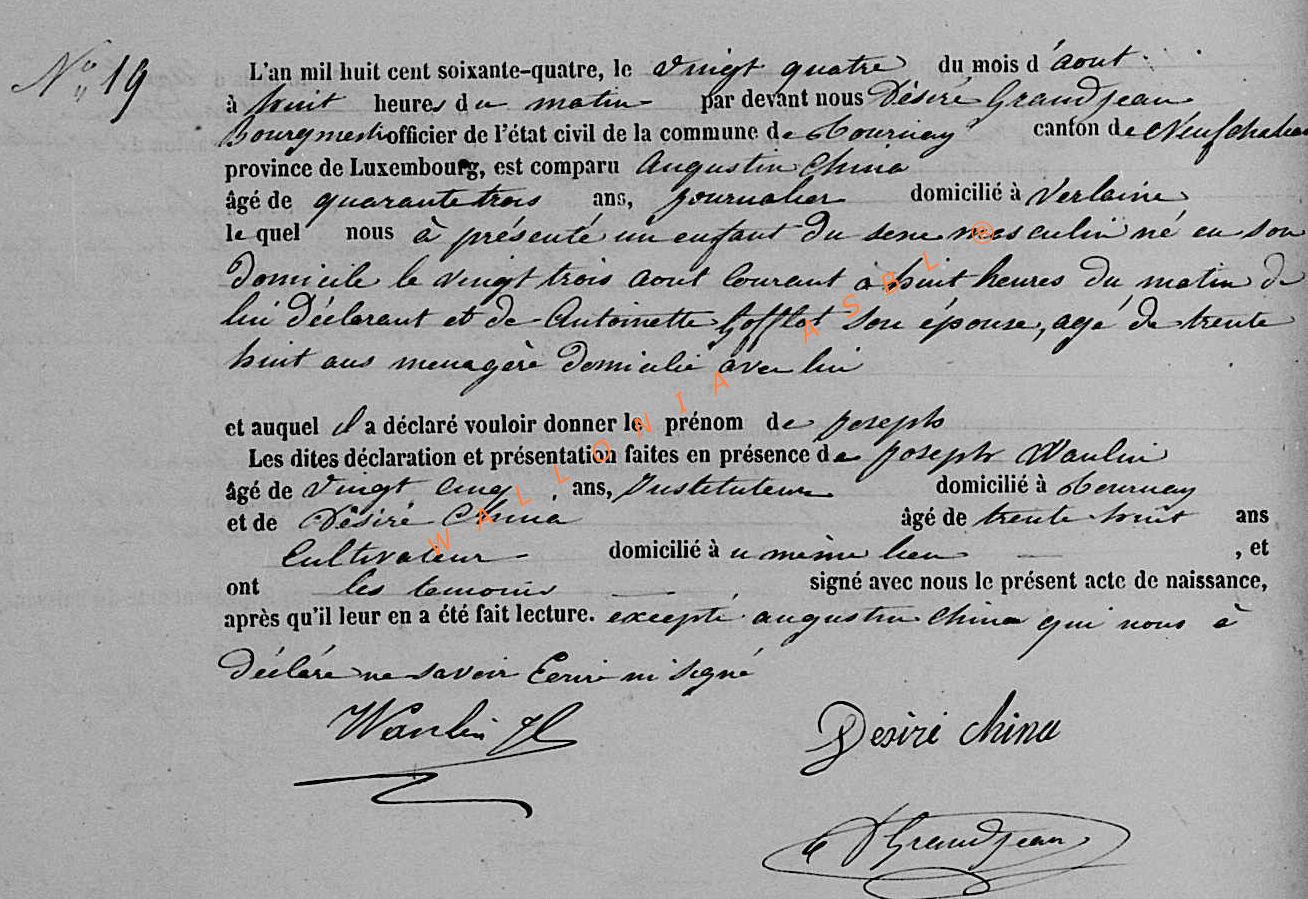 N° 19
L'an mil huit cent soixante-quatre, le vingt quatre du mois d'aout
à huit heures du matin par devant nous Désiré Grandjean
Bourgmestre officier de l'état civil de la commune de Tournay canton de Neufchateau
province de Luxembourg, est comparu Augustin China
âgé de quarante trois ans, journalier domicilié à Verlaine
le quel nous à présenté un enfant du sexe masculin né en son
domicile le vingt trois aout courant à huit heures du matin de
lui déclarant et de Antoinette Gofflot son épouse, agé de trente
huit ans menagère domicilié avec lui
et auquel il a déclaré vouloir donner le prénom de joseph
Les dites déclaration et présentation faites en présence de joseph Wanlin
âgé de vingt cinq ans, Instituteur domicilié à Tournay
et de Désiré China âgé de trente huit ans
Cultivateur domicilié à u même lieu , et
ont les temoins signé avec nous le présent acte de naissance,
après qu'il leur en a été fait lecture. excepté augustin China qui nous à
déclaré ne savoir Ecrire ni signé
Wanlin JH
Desiré China
D Grandjean
WALLONIA ASBL ®